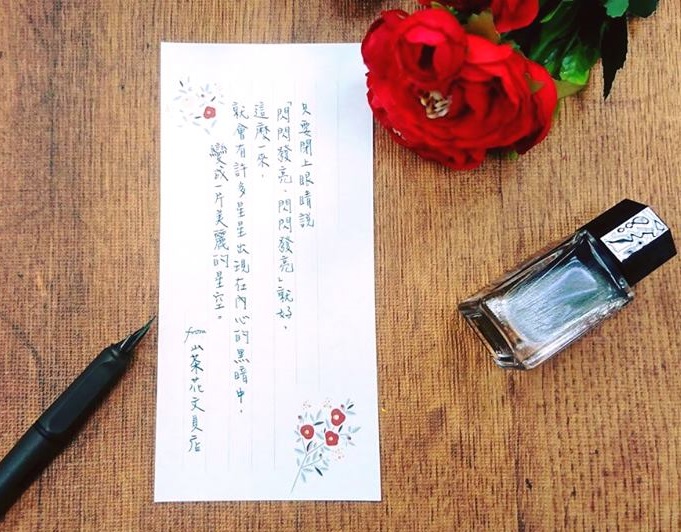 只要閉上眼睛說
「閃閃發亮，閃閃發亮」就好，
這麼一來，
就會有許多星星出現在內心的黑暗中，
變成一片美麗的星空。
from 山茶花文具店